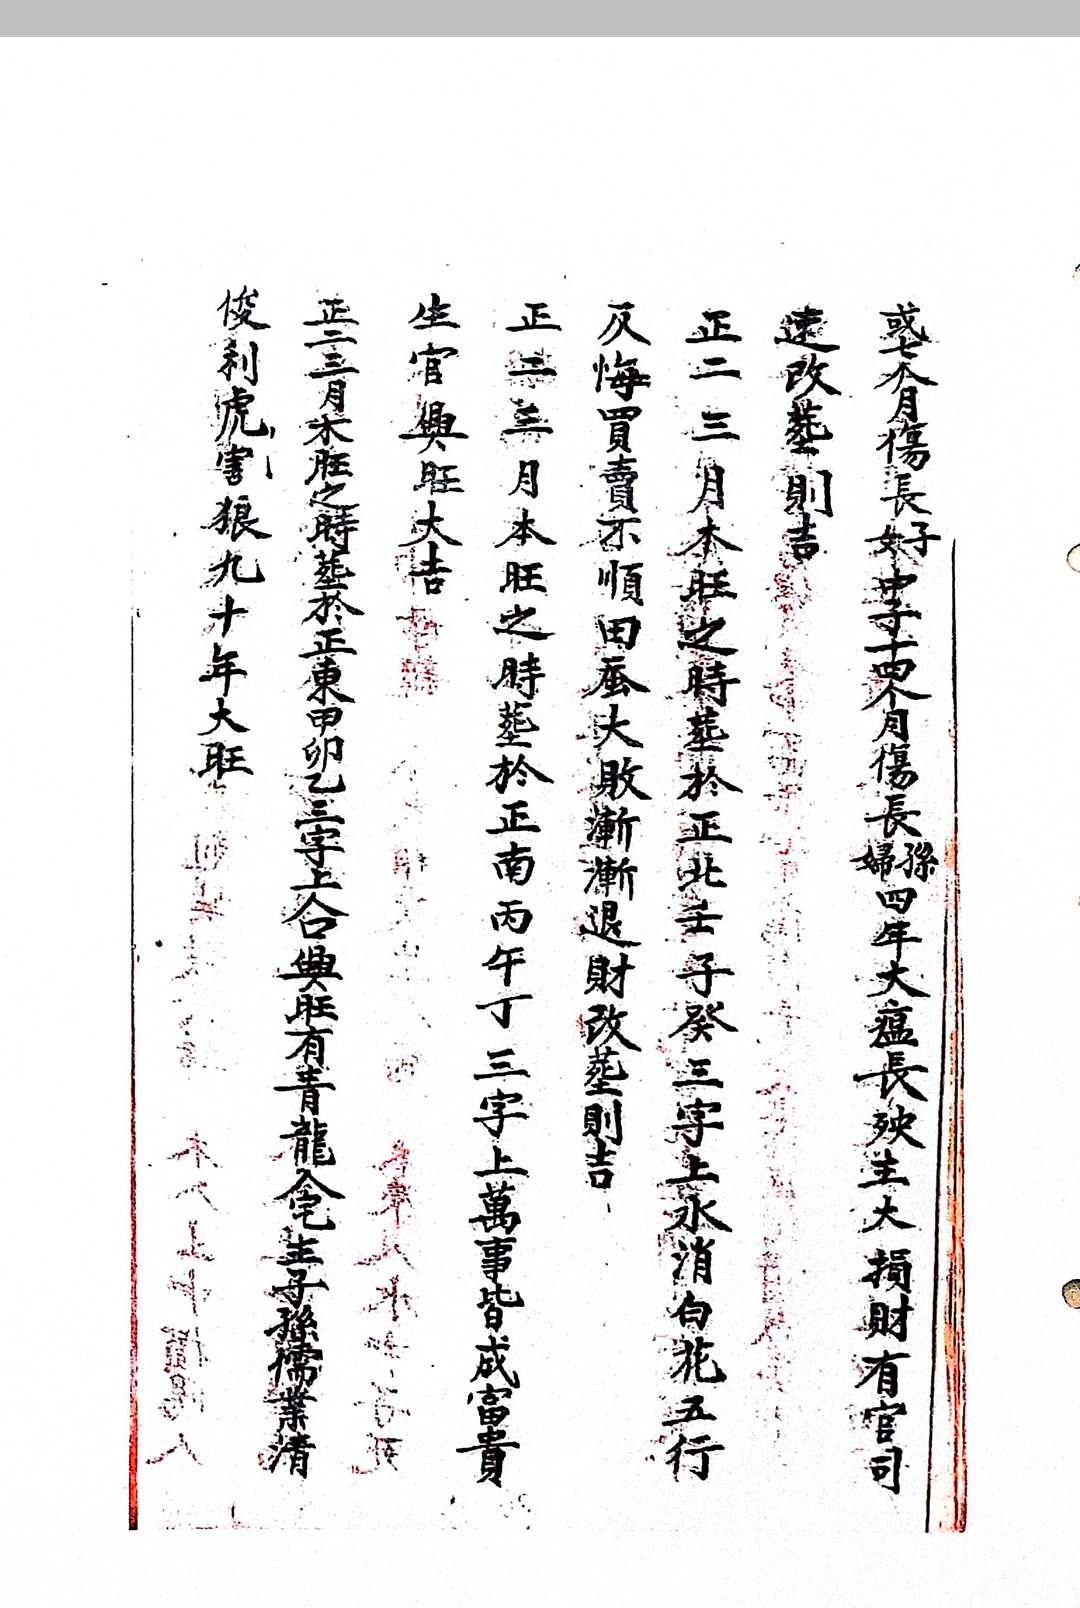 或七个月傷長子女中子十四个月傷長孫婦四年大瘟長殃主大損財有官司
速改塟則吉
正二三月木旺之時塟於正北壬子癸三字上水消白花五行
反悔買賣不順田蚕大敗漸漸退財改塟則吉
正二三月本旺之時塟於正南丙午丁三字上萬事皆成富貴
生官興旺大吉
正二三月木旺之時塟於正東甲卯乙三字上合興旺有青龍入宅主子孫儒業清
俊利虎害狼九十年大旺